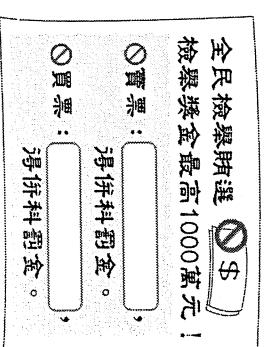 全民檢舉賄選 $
檢舉獎金最高1000萬元！
賣票：，
得併科罰金。
買票：，
得併科罰金。